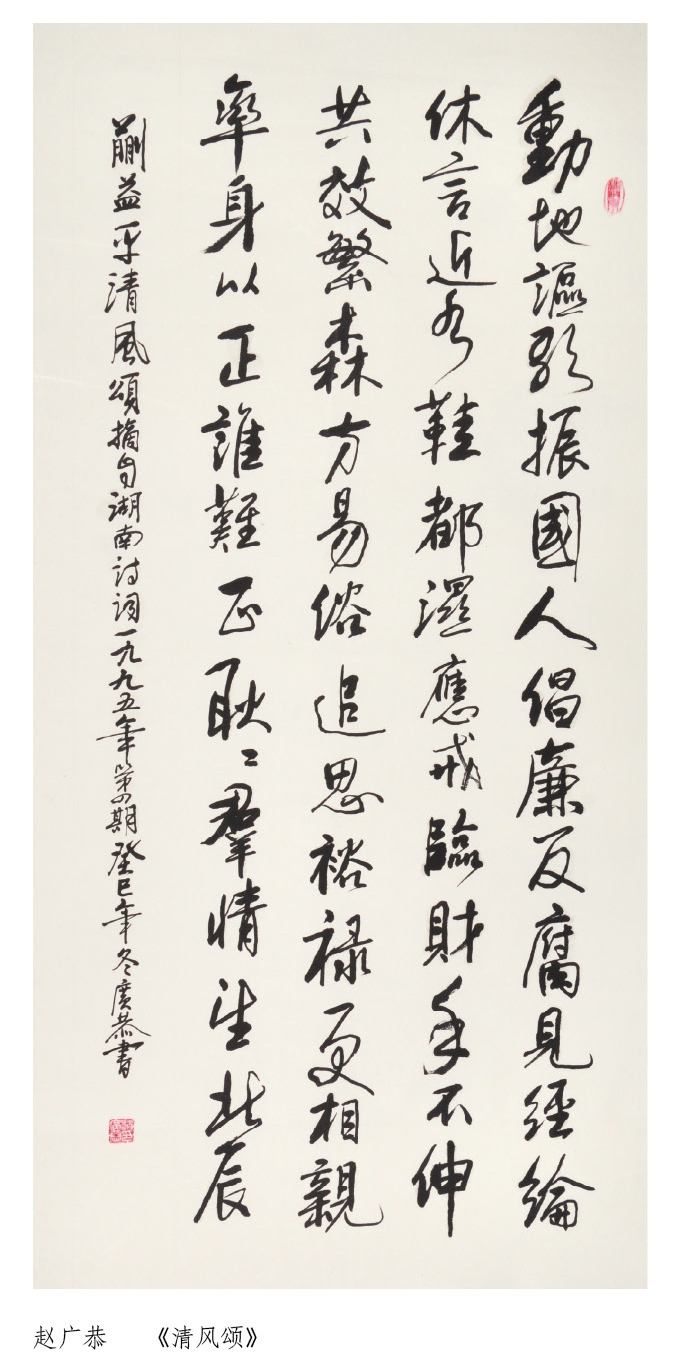 動地謳歌振國人倡廉反腐見經綸
休言近水鞋都濕應戒臨財手不伸
共效繁森方易俗追思裕禄更相親
率身以正誰難正耿〻羣情望北辰
蒯益平清風頌摘自湖南詩詞一九九五年第四期癸巳年冬廣恭書
赵广恭 《清风颂》